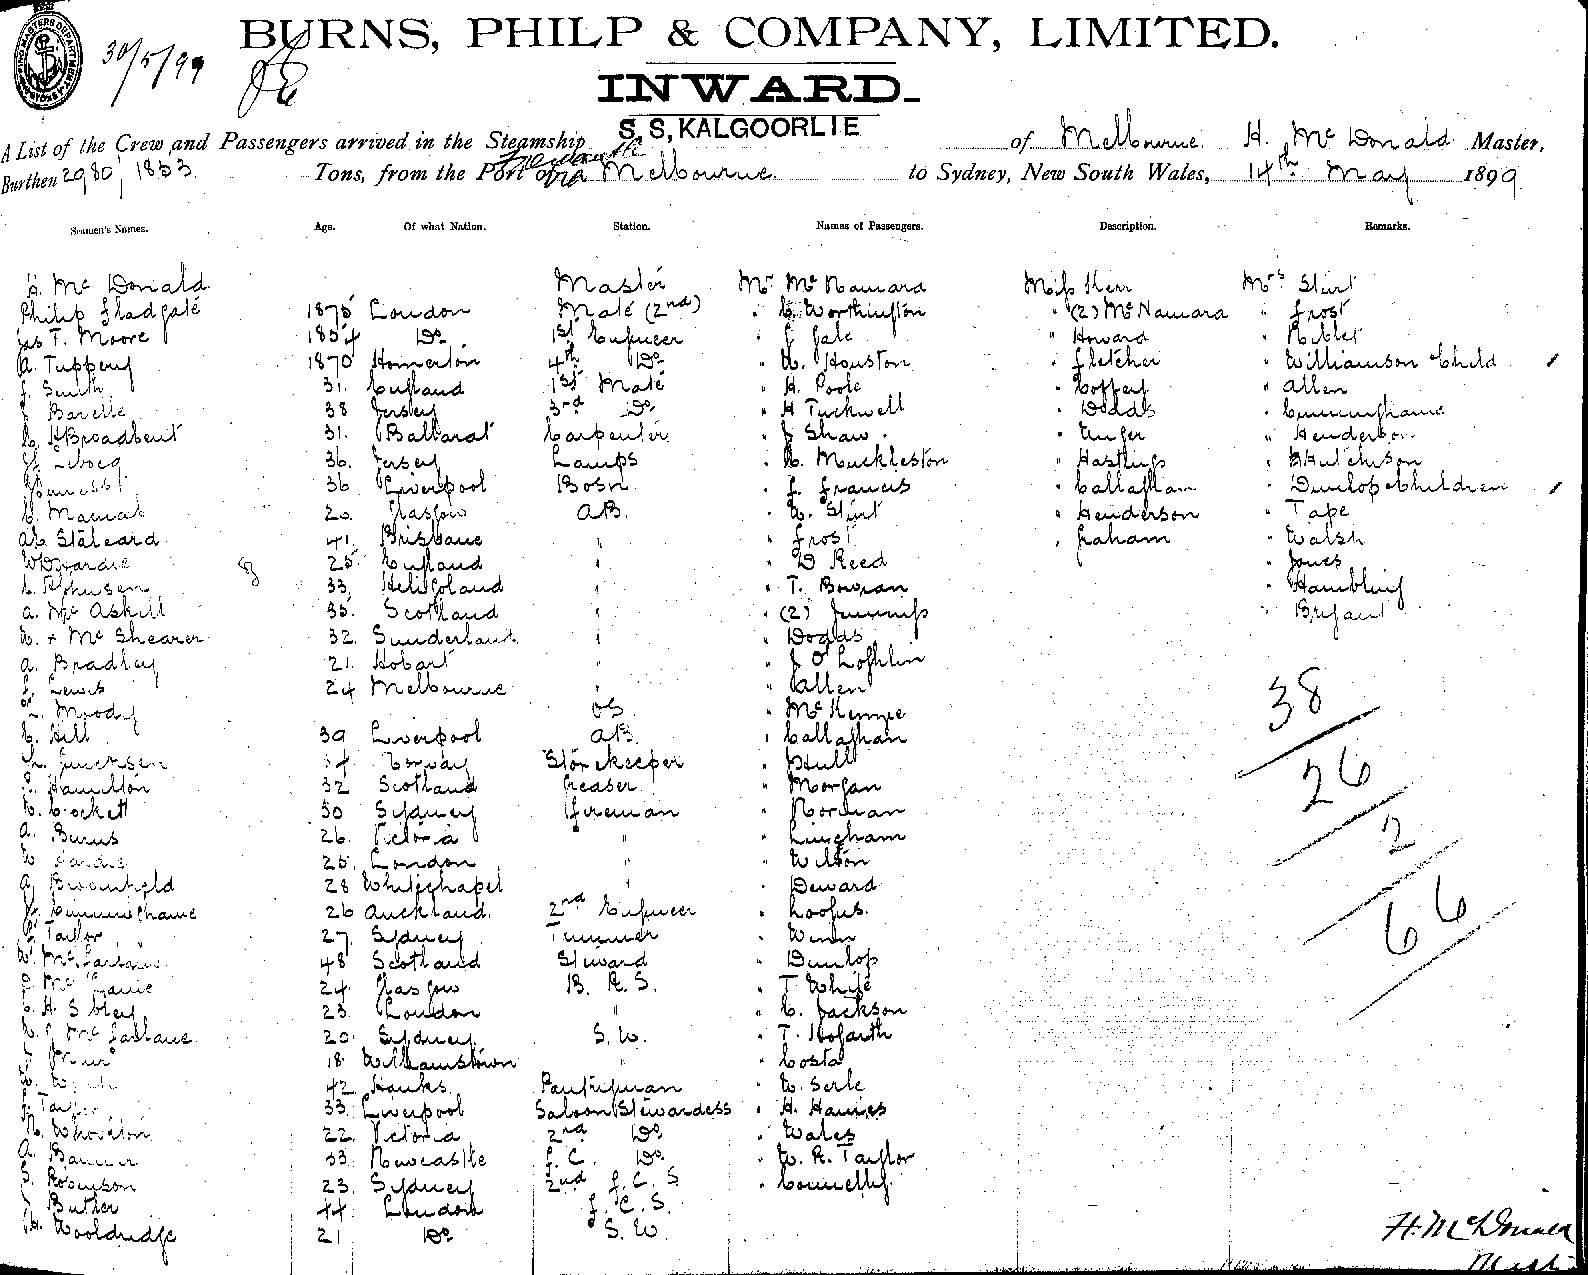 30/5/99
BURNS, PHILP & COMPANY, LIMITED.
INWARD.
S. S. KALGOORLIE
A List of the Crew and Passengers arrived in the Steamship of Melbourne H. Mc Donald Master,
Burthen 2980, 1853 Tons, from the Port of Fremantle via Melbourne to Sydney, New South Wales, 14th May 1899
Seamen's Names. Age. Of what Nation. Station. Names of Passengers. Description. Remarks.
H. Mc Donald Master Mr Mc Namara Miss Kerr Mrs Sturt
Philip Shadgate 1875 London Mate (2nd) " C. Worthington " (2) McNamara " Frost
Jas T. Moore 1854 Do 1st Engineer " J Gale " Howard " Riblet
A. Tuppeny 1870 Homerton 4th Do " W. Houston " Fletcher " Williamson Child /
J. Smith 31. England 1st Mate " H. Poole " Coffey " Allen
J Barelle 38 Jersey 3rd Do " H Tuckwell " Dodds " Cunninghame
C. H Broadbent 31. Ballarat Carpenter " J Shaw " Unger " Henderson
36. Jersey Lamps " C. Muckleston " Hastings " Hutchison
36 Liverpool Bosn " J. Francis " Callaghan " Dunlop Children /
20. Glasgow AB. " W. Sturt " Henderson " Tape
41. Brisbane " " Frost " Graham " Walsh
25 England " " D Reed " Jones
33 Heligoland " " T. Bowran " Hambling
A. Mc Askill 35. Scotland " " (2) Jennings " Bryant
Mc Shearer 32. Sunderland " " Dodds
A. Bradley 21. Hobart " " J O'Loghlin
Lewis 24 Melbourne " " Allen
Moody OS " Mc Kenzie
C. Hill 39 Liverpool AB. " Callaghan
34 Norway Storekeeper " Hull
Hamilton 32 Scotland Greaser " Morgan
Cockett 30 Sydney Fireman " Norman
A. Burns 26. Victoria " " Lingham
25. London " " Wilson
A. Broomfield 28 Whitechapel " " Deward
J. Cunninghame 26 Auckland. 2nd Engineer " Loofus.
Taylor 27. Sydney Trimmer " Winn
W. Mc Farlane 48 Scotland Steward " Dunlop
24. Glasgow B. R. S. " T White
C. H. Sibley 23. London " " C. Jackson
Mc Farlane 20. Sydney S. W. " T. Hogarth
18. Williamstown " " Costa
42 Hanks. Pantryman " W. Serle
Taylor 33. Liverpool Saloon Stewardess " H. Haines
22. Victoria 2nd Do " Wales
33. Newcastle F. C. Do " W. R. Taylor
S. Robinson 23. Sydney 2nd F. C. S. " Connelly.
Butler 44. London F. C. S.
H. Wooldridge 21 Do S. W.
38
26
2
66
H. McDonald
Master